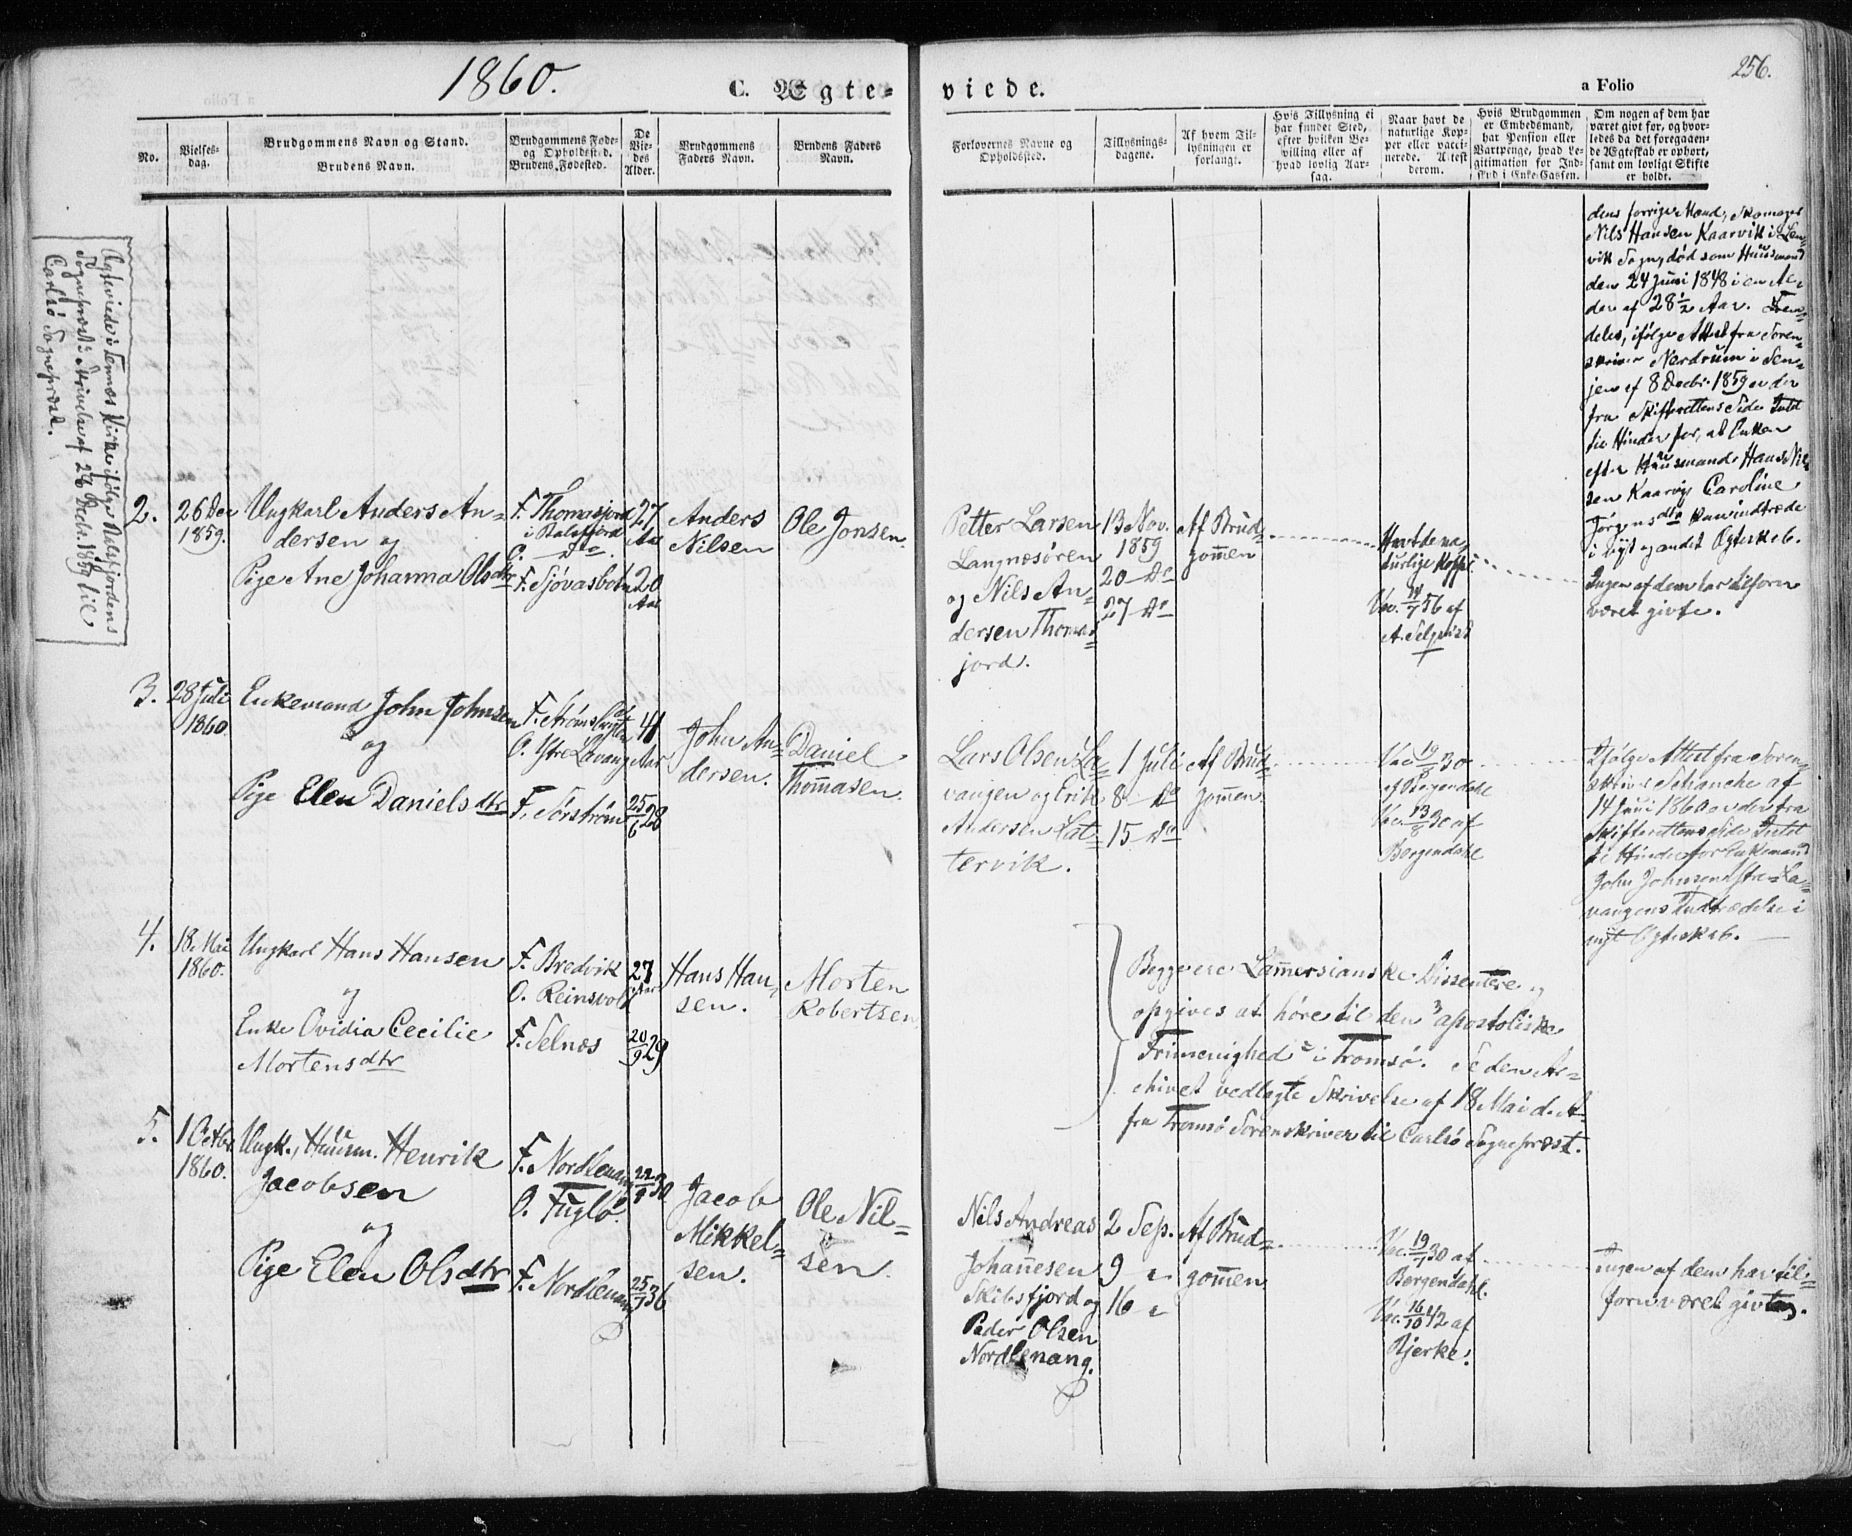 1860.
C. Ægte-
viede.
a Folio
256.
No.
Vielses-
dag.
Brudgommens Navn og Stand.
Brudens Navn.
Brudgommens Føde-
og Opholdsted.
Brudens Fødested.
De
Vie-
des
Alder.
Brudgommens
Faders Navn.
Brudens Faders
Navn.
Forlovernes Navne og
Opholdsted.
Tillysnings-
dagene.
Af hvem Til-
lysningen er
forlangt.
Hvis Tillysning ei
har fundet Sted,
efter hvilken Be-
villing eller af
hvad lovlig Aar-
sag.
Naar havt de
naturlige Kop-
per eller vacci-
nerede. Attest
derom.
Hvis Brudgommen
er Embedsmand,
har Pension eller
Vartpenge, hvad Le-
gitimation for Ind-
skud i Enke-Cassen.
Om nogen af dem har
været givt før, og hvor-
ledes da det foregaaen-
de Ægteskab er ophørt,
samt om lovligt Skifte
er holdt.
dens forrige Mand,
Nils Hansen Kaarvik i Len-
vik Sogn, død som Huusmand
den 24 Juni 1848 i en Al-
der af 28 1/2 Aar. Frem-
deles, ifølge Attest fra Soren-
skriver Nerdrum i Sen-
jen af 8 Decbr. 1859 er der
fra Skifterettens Side Intet
til Hinder for, at Enken
efter Huusmand Hans Nil-
sen Kaarvig Caroline
Jørgensdtr kan indtræde
i nyt og andet Ægteskab.
Ægteviede i Tennæs Kirke ifølge Balsfjordens
Sognepræsts Skrivelse af 26 Decbr. 1859 til
Carlsø Sognepræst.
2.
26 Dec
1859.
Ungkarl Anders An-
dersen og
Pige Ane Johanna Olsdtr
F. Thomasjord
i Balsfjord
O. do
F. Sjøvasbotn
27
Aar
20
Aar
Anders
Nilsen
Ole Jonsen.
Petter Larsen
Langnæsøren
og Nils An-
dersen Thomas-
jord.
13 Nov.
1859
20 - do
27 - do
Af Brud-
gommen
Havt de na-
turlige Kopp.
Vac. 14/7 56 af
Ingen af dem har tilforn
været givte.
3.
28 Juli
1860.
Enkemand John Johnsen
og
Pige Elen Danielsdtr
F. Strøms
O. Ytre Lavang
F. Sørstrøm
41
Aar
25/6 28
John An-
dersen.
Daniel
Thomasen.
Lars Olsen La-
vangen og Erik
Andersen Lat-
tervik.
1 Juli
8 - do
15 - do
Af Brud-
gommen.
Vac 19/ 30
af Borgendahl
Vac. 13/8 30 af
Borgendahl
Ifølge Attest fra Soren-
skriver Schanche af
14 Juni 1860 er der fra
Skifterettens Side Intet
til Hinder for Enkemand
John Johnsen Ytre-La-
vangens Indtrædelse i
nyt Ægteskab.
4.
18 Mai
1860.
Ungkarl Hans Hansen
og
Enke Ovidia Cecilie
Mortensdtr
F. Bredvik
O. Reinsvold
F. Selnæs
27
Aar
20/9 29
Hans Han-
sen.
Morten
Robertsen.
Begge ere Lammersianske Dissentere og
opgives at høre til den "apostoliske
Frimenighed" i Tromsø. Se den Ar-
chivet vedlagte Skrivelse af 18 Mai d. A.
fra Tromsø Sorenskriver til Carlsø Sognepræst.
5.
1 Octbr.
1860.
Ungk., Huusm. Henrik
Jacobsen
og
Pige Elen Olsdtr
F. Nordlenang
O. Fuglø.
F. Nordlenang
30
25/ 36
Jacob
Mikkel-
sen.
Ole Nil-
sen.
Nils Andreas
Johannesen
Skibsfjord og
Peder Olsen
Nordlenang.
2 Sep.
9 "
16 "
Af Brud-
gommen.
Vac. 19/ 30 af
Borgendahl.
Vac. 16/10 42 af
Bjerke.
Ingen af dem har til-
forn været givte.